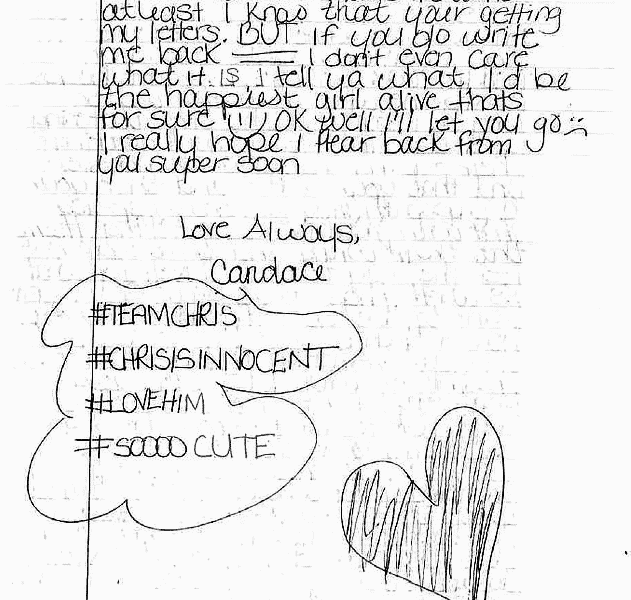 atleast i know that your getting
my letters. BUT if you do write
me back I don't even care
what it is i tell ya what I'd be
the happiest girl alive thats
for sure !!!) OK well I'll let you go :(
I really hope I Hear back from
yal super soon
Love Always,
Candace
#TEAMCHRIS
#CHRISISINNOCENT
#LOVEHIM
#SOOOO CUTE